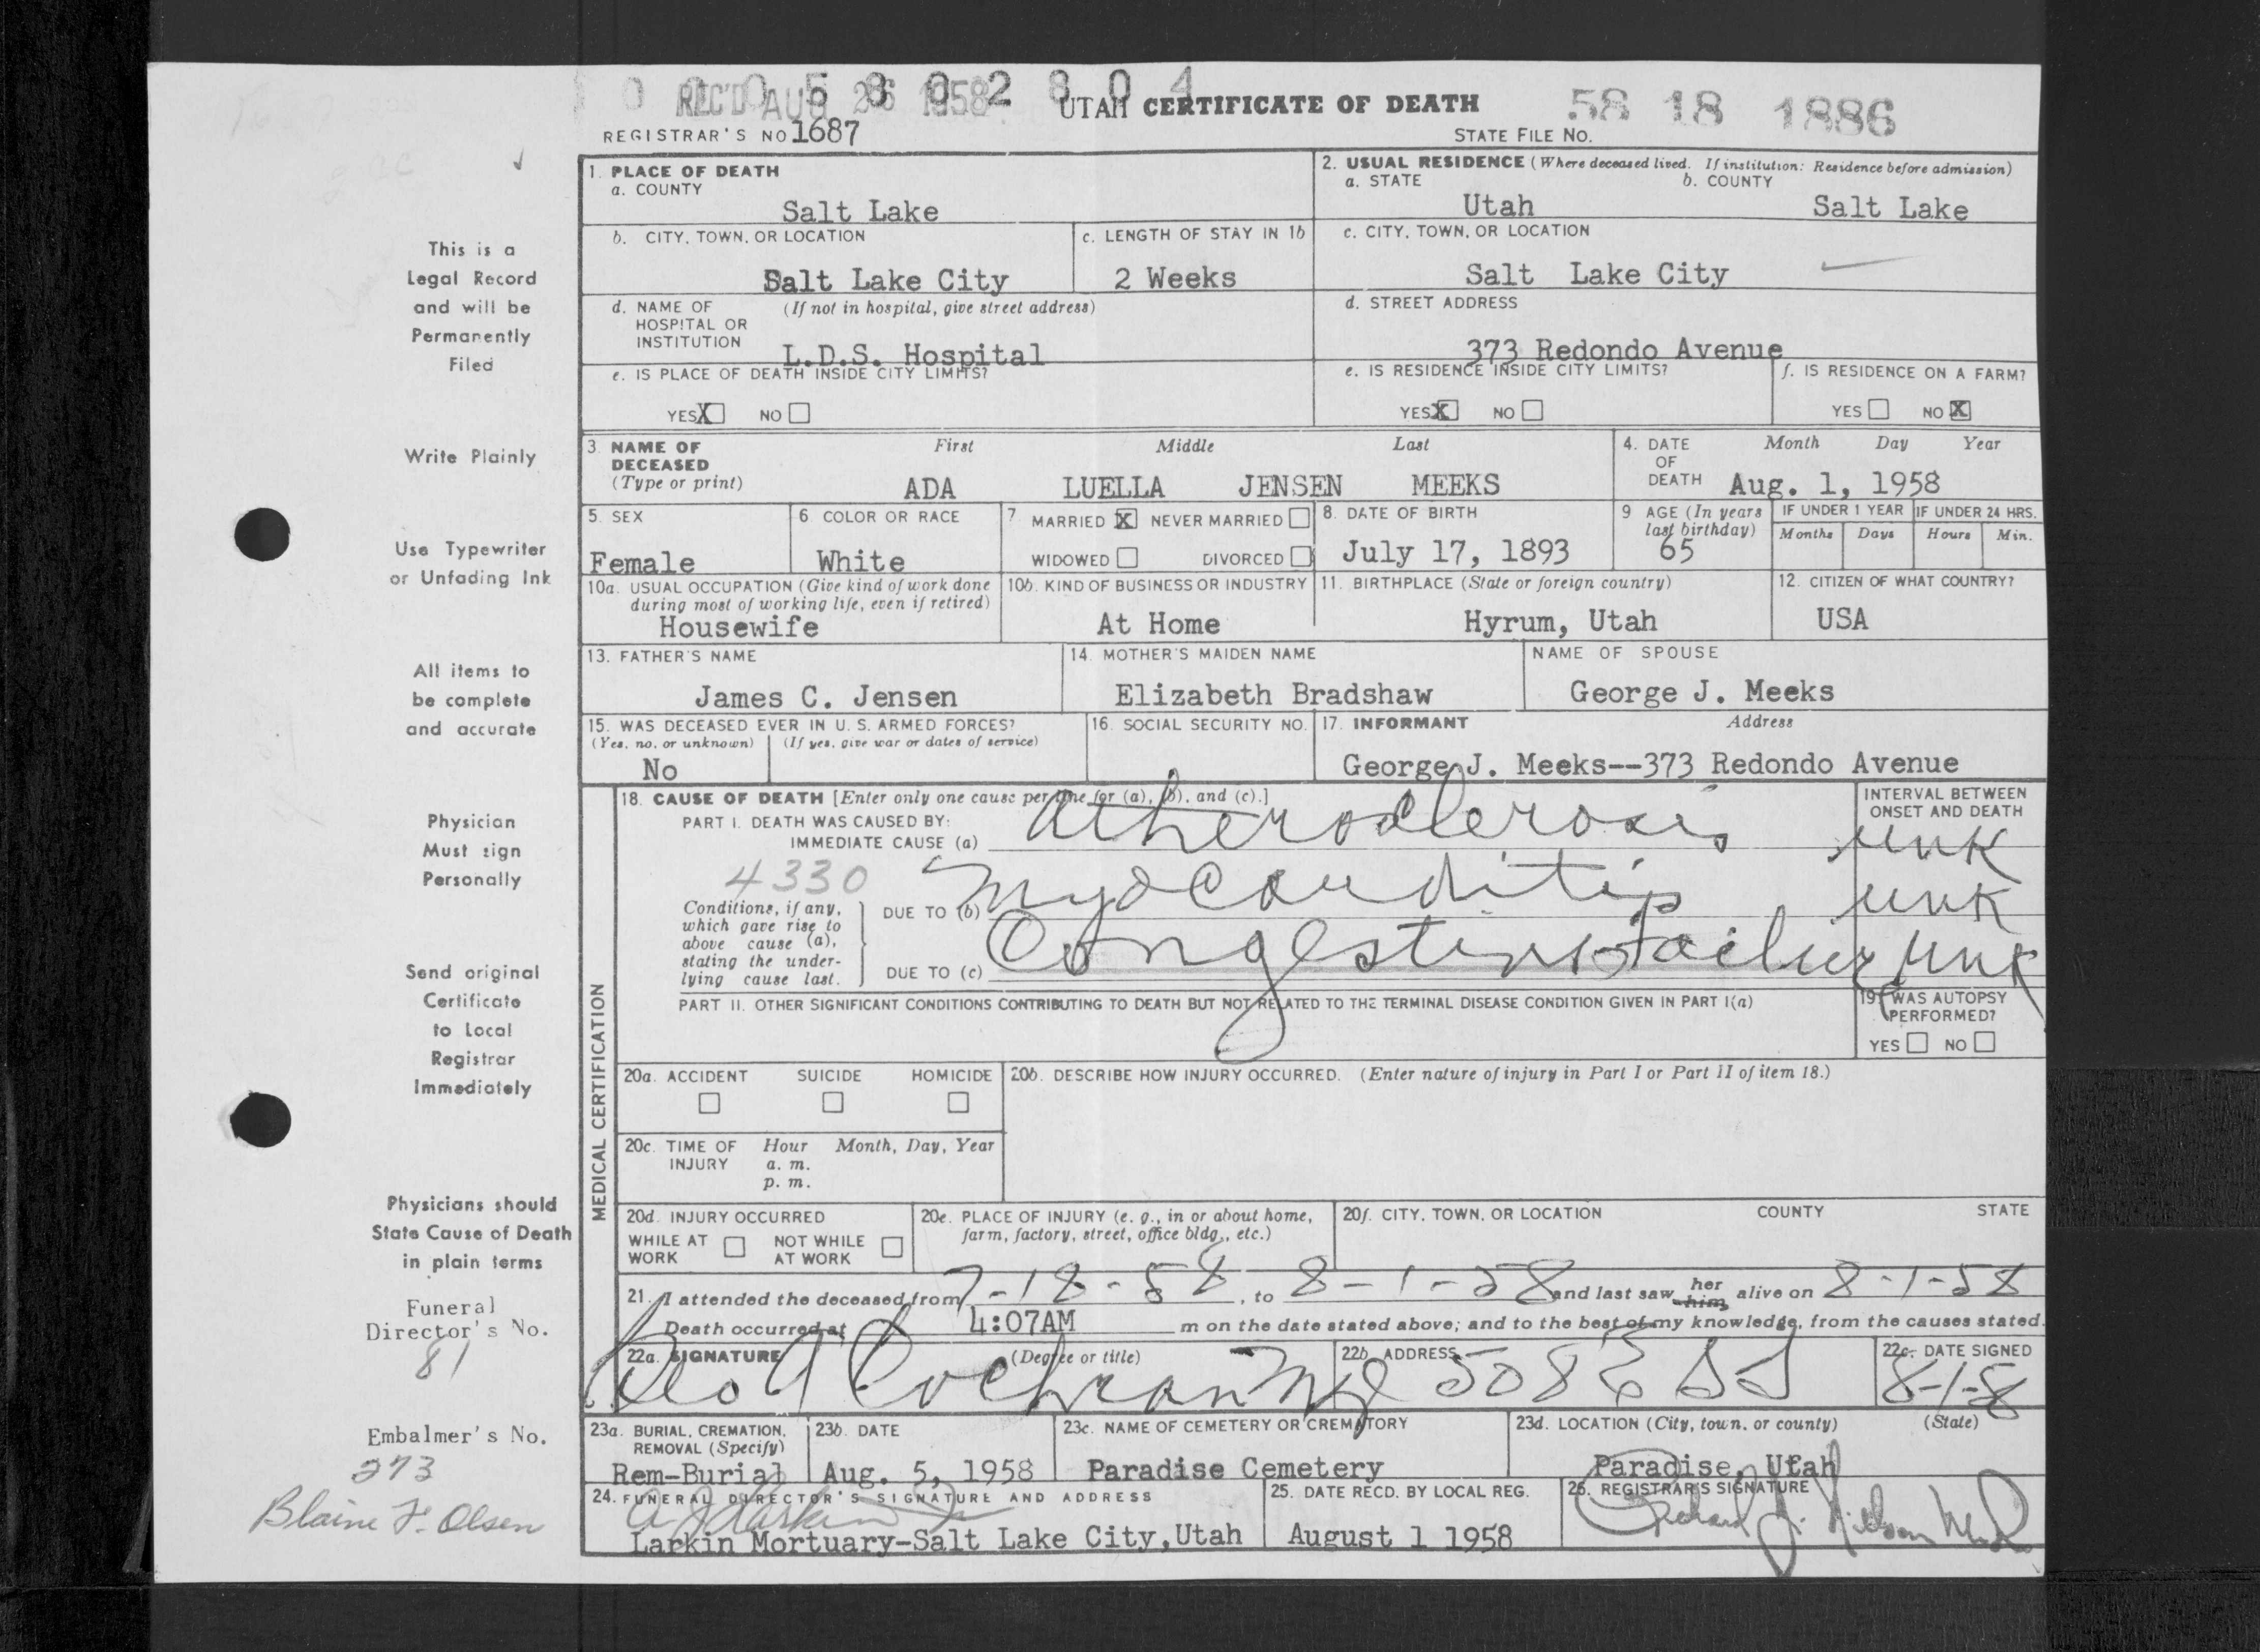 0 0 0 5 8 0 2 8 0 4
REC'D AUG 26 1958
UTAH CERTIFICATE OF DEATH
58 18 1886
REGISTRAR'S NO 1687
STATE FILE NO.
1. PLACE OF DEATH
a. COUNTY
Salt Lake
2. USUAL RESIDENCE (Where deceased lived. If institution: Residence before admission)
a. STATE
Utah
b. COUNTY
Salt Lake
b. CITY, TOWN, OR LOCATION
Salt Lake City
c. LENGTH OF STAY IN 1b
2 Weeks
c. CITY, TOWN, OR LOCATION
Salt Lake City
d. NAME OF HOSPITAL OR INSTITUTION
(If not in hospital, give street address)
L.D.S. Hospital
d. STREET ADDRESS
373 Redondo Avenue
e. IS PLACE OF DEATH INSIDE CITY LIMITS?
YES X NO
e. IS RESIDENCE INSIDE CITY LIMITS?
YES X NO
f. IS RESIDENCE ON A FARM?
YES NO X
3. NAME OF DECEASED
(Type or print)
First Middle Last
ADA LUELLA JENSEN MEEKS
4. DATE OF DEATH
Month Day Year
Aug. 1, 1958
5. SEX
Female
6 COLOR OR RACE
White
7 MARRIED X NEVER MARRIED
WIDOWED DIVORCED
8. DATE OF BIRTH
July 17, 1893
9 AGE (In years last birthday)
65
IF UNDER 1 YEAR
Months Days
IF UNDER 24 HRS.
Hours Min.
10a. USUAL OCCUPATION (Give kind of work done during most of working life, even if retired)
Housewife
10b. KIND OF BUSINESS OR INDUSTRY
At Home
11. BIRTHPLACE (State or foreign country)
Hyrum, Utah
12. CITIZEN OF WHAT COUNTRY?
USA
13. FATHER'S NAME
James C. Jensen
14. MOTHER'S MAIDEN NAME
Elizabeth Bradshaw
NAME OF SPOUSE
George J. Meeks
15. WAS DECEASED EVER IN U. S. ARMED FORCES?
(Yes, no, or unknown) (If yes, give war or dates of service)
No
16. SOCIAL SECURITY NO.
17. INFORMANT Address
George J. Meeks--373 Redondo Avenue
MEDICAL CERTIFICATION
18. CAUSE OF DEATH [Enter only one cause per line for (a), (b), and (c).]
PART I. DEATH WAS CAUSED BY:
IMMEDIATE CAUSE (a)
Atherosclerosis
INTERVAL BETWEEN ONSET AND DEATH
unk
4330
Conditions, if any, which gave rise to above cause (a), stating the underlying cause last.
DUE TO (b)
Myocarditis
unk
DUE TO (c)
Congestive failure
unk
PART II. OTHER SIGNIFICANT CONDITIONS CONTRIBUTING TO DEATH BUT NOT RELATED TO THE TERMINAL DISEASE CONDITION GIVEN IN PART I(a)
19. WAS AUTOPSY PERFORMED?
YES NO
20a. ACCIDENT SUICIDE HOMICIDE
20b. DESCRIBE HOW INJURY OCCURRED. (Enter nature of injury in Part I or Part II of item 18.)
20c. TIME OF INJURY
Hour Month, Day, Year
a. m.
p. m.
20d. INJURY OCCURRED
WHILE AT WORK NOT WHILE AT WORK
20e. PLACE OF INJURY (e. g., in or about home, farm, factory, street, office bldg., etc.)
20f. CITY, TOWN, OR LOCATION COUNTY STATE
21. I attended the deceased from 7-18-58, to 8-1-58 and last saw her him alive on 8-1-58
Death occurred at 4:07AM m on the date stated above; and to the best of my knowledge, from the causes stated.
22a. SIGNATURE (Degree or title)
Cochran MD
22b. ADDRESS
508 E
22c. DATE SIGNED
8-1-8
23a. BURIAL, CREMATION, REMOVAL (Specify)
Rem-Burial
23b. DATE
Aug. 5, 1958
23c. NAME OF CEMETERY OR CREMATORY
Paradise Cemetery
23d. LOCATION (City, town, or county) (State)
Paradise, Utah
24. FUNERAL DIRECTOR'S SIGNATURE AND ADDRESS
Larkin Mortuary-Salt Lake City, Utah
25. DATE RECD. BY LOCAL REG.
August 1 1958
26. REGISTRAR'S SIGNATURE
This is a
Legal Record
and will be
Permanently
Filed
Write Plainly
Use Typewriter
or Unfading Ink
All items to
be complete
and accurate
Physician
Must sign
Personally
Send original
Certificate
to Local
Registrar
Immediately
Physicians should
State Cause of Death
in plain terms
Funeral
Director's No.
81
Embalmer's No.
273
Blaine F. Olsen